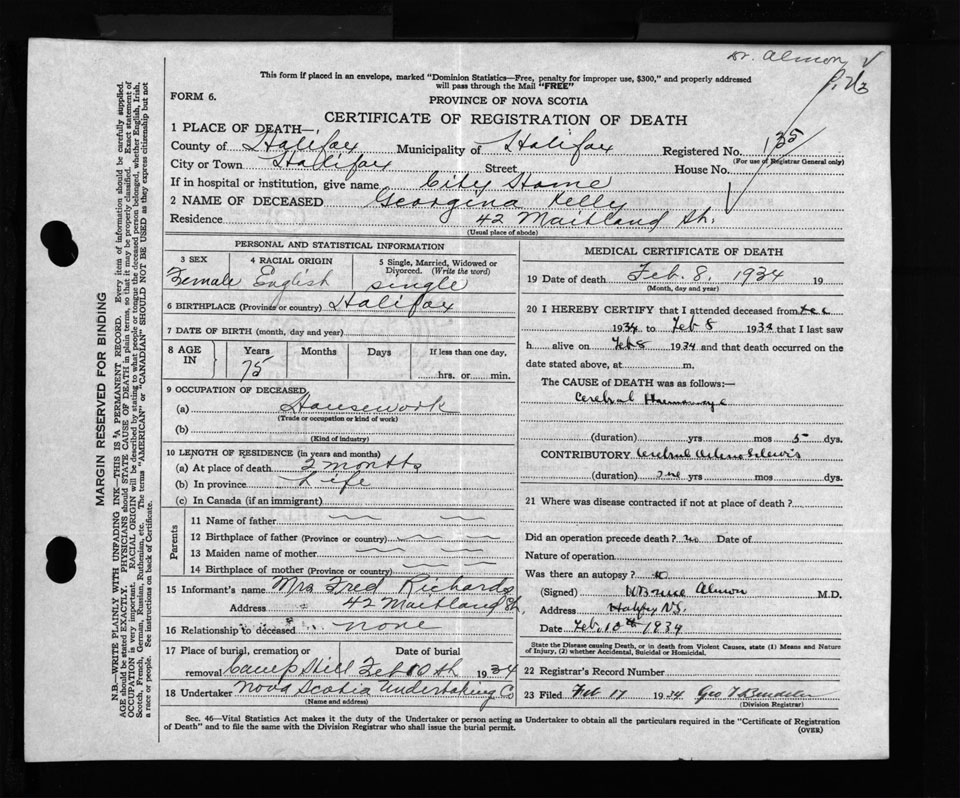 Dr. Almon
This form if placed in an envelope, marked "Dominion Statistics—Free, penalty for improper use, $300," and properly addressed
will pass through the Mail "FREE"
FORM 6.
PROVINCE OF NOVA SCOTIA
CERTIFICATE OF REGISTRATION OF DEATH
1 PLACE OF DEATH—
County of Halifax Municipality of Halifax Registered No. 135
(For use of Registrar General only)
City or Town Halifax Street House No.
If in hospital or institution, give name City Home
2 NAME OF DECEASED Georgina Kelly
Residence 42 Maitland St.
(Usual place of abode)
PERSONAL AND STATISTICAL INFORMATION
3 SEX 4 RACIAL ORIGIN 5 Single, Married, Widowed or
Divorced. (Write the word)
Female English single
6 BIRTHPLACE (Province or country) Halifax
7 DATE OF BIRTH (month, day and year)
8 AGE IN Years Months Days If less than one day,
75 hrs. or min.
9 OCCUPATION OF DECEASED
(a) Housework
(Trade or occupation or kind of work)
(b)
(Kind of industry)
10 LENGTH OF RESIDENCE (in years and months)
(a) At place of death 2 months
(b) In province Life
(c) In Canada (if an immigrant)
Parents
11 Name of father
12 Birthplace of father (Province or country)
13 Maiden name of mother
14 Birthplace of mother (Province or country)
15 Informant's name Mrs Fred Richards
Address 42 Maitland St.
16 Relationship to deceased none
17 Place of burial, cremation or Date of burial
removal Camp Hill Feb 10th 1934
18 Undertaker Nova Scotia Undertaking Co
(Name and address)
MEDICAL CERTIFICATE OF DEATH
19 Date of death Feb. 8, 1934 19
(Month, day and year)
20 I HEREBY CERTIFY that I attended deceased from Dec
1934 to Feb 8 1934 that I last saw
h alive on Feb 8 1934 and that death occurred on the
date stated above, at m.
The CAUSE of DEATH was as follows:—
Cerebral Hemorrhage
(duration) yrs mos 5 dys.
CONTRIBUTORY Cerebral Arterio Sclerosis
(duration) yrs mos dys.
21 Where was disease contracted if not at place of death?
Did an operation precede death? no Date of
Nature of operation
Was there an autopsy? no
(Signed) Bruce Almon M.D.
Address Halifax N.S.
Date Feb. 10th 1934
State the Disease causing Death, or in death from Violent Causes, state (1) Means and Nature
of Injury, (2) whether Accidental, Suicidal or Homicidal.
22 Registrar's Record Number
23 Filed Feb 17 1934 Geo
(Division Registrar)
Sec. 46—Vital Statistics Act makes it the duty of the Undertaker or person acting as Undertaker to obtain all the particulars required in the "Certificate of Registration
of Death" and to file the same with the Division Registrar who shall issue the burial permit. (OVER)
MARGIN RESERVED FOR BINDING
N.B.—WRITE PLAINLY WITH UNFADING INK—THIS IS A PERMANENT RECORD. Every item of information should be carefully supplied.
AGE should be stated EXACTLY. PHYSICIANS should STATE CAUSE OF DEATH in plain terms, so that it may be properly classified. Exact statement of
OCCUPATION is very important. RACIAL ORIGIN will be described by stating to what people or tongue the deceased person belonged, whether English, Irish,
Scotch, French, German, Russian, Ruthenian, etc. The terms "AMERICAN" or "CANADIAN" SHOULD NOT BE USED as they express citizenship but not
a race or people. See instructions on back of Certificate.